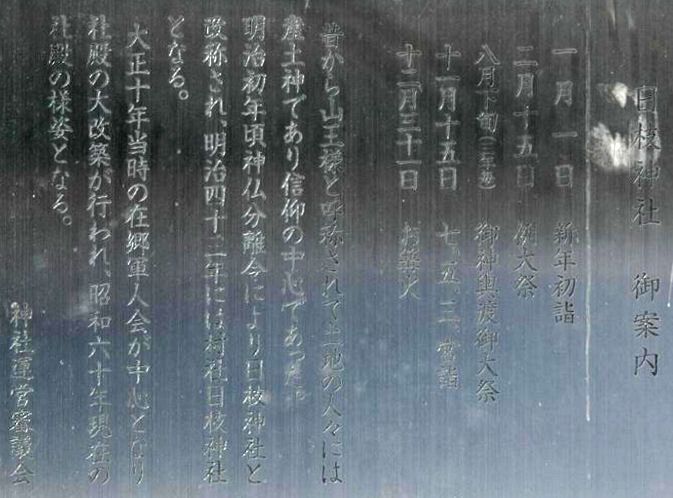 日枝神社 御案内
一月一日 新年初詣
二月十五日 例大祭
八月下旬 御神輿渡御大祭
十一月十五日 七、五、三、詣
十二月三十一日 お焚火
昔から山王様と呼称されて土地の人々には
産土神であり信仰の中心であった。
明治初年頃神仏分離令により日枝神社と
改称され、明治四十二年には村社日枝神社
となる。
大正十年当時の在郷軍人会が中心となり
社殿の大改築が行われ、昭和六十年現在の
社殿の様姿となる。
神社運営審議会